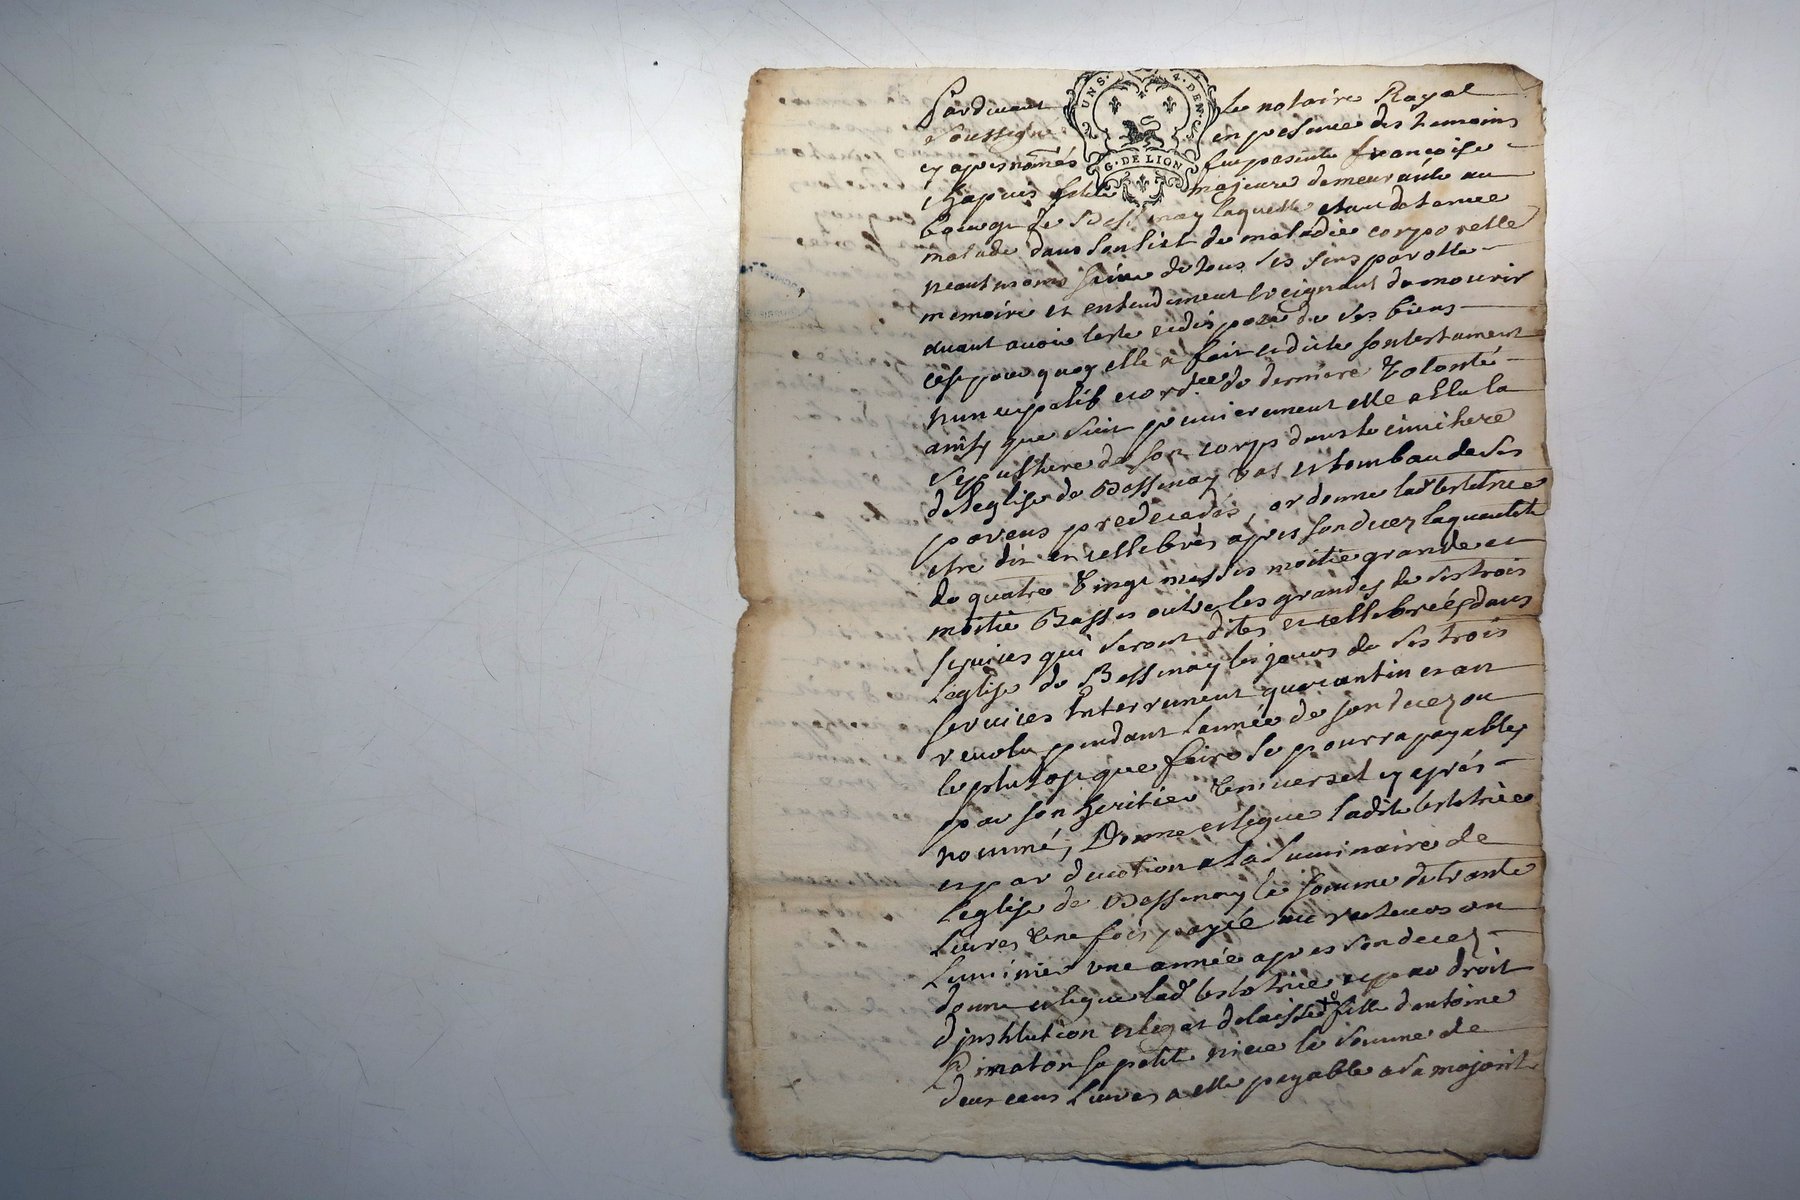 UNS. 4. DEN
G. DE LION
Pardevant le notaire Royal
soussigné en presence des temoins
cy apres només fut presente françoise
Chapuis fille majeure demeurante au
bourg de Bessenay laquelle etant detenue
malade dans son lict de maladie corporelle
neantmoins saine de tous ses sens parolle
memoire et entendement creignant de mourir
avant avoir testé et disposé de ses biens
cest pourquoy elle a fait et dicté son testament
nuncupatif et ord.ce de derniere Volonté
que suit premierement elle a elu la
sepulture de son corps dans le cimetiere
de leglise de Bessenay vas et tombau de ses
parens predecedés, ordonne lad testatrice
etre dit et cellebrés apres son decez la quantité
de quatre Vingt messes moitié grande et
moitié Basses outre les grandes de ses trois
services qui seront dites et cellebreés dans
leglise de Bessenay les jours de ses trois
services Enterrement quarantin et an
revolu pendant lannée de son decez ou
le plutost que faire se pourra payables
par son heritier Universel cy aprés
nommé, Donne et legue ladite testatrice
et par devotion a la luminaire de
leglise de Bessenay la somme de trante
Livres Une fois payée au recteur ou
Luminier une année apres son decez
donne et legue lad testatrice et par droit
dinstitution et legat delaisse a fille dantoine
Pimaton sa petite niece la somme de
deux cens Livres a elle payable a sa majorité